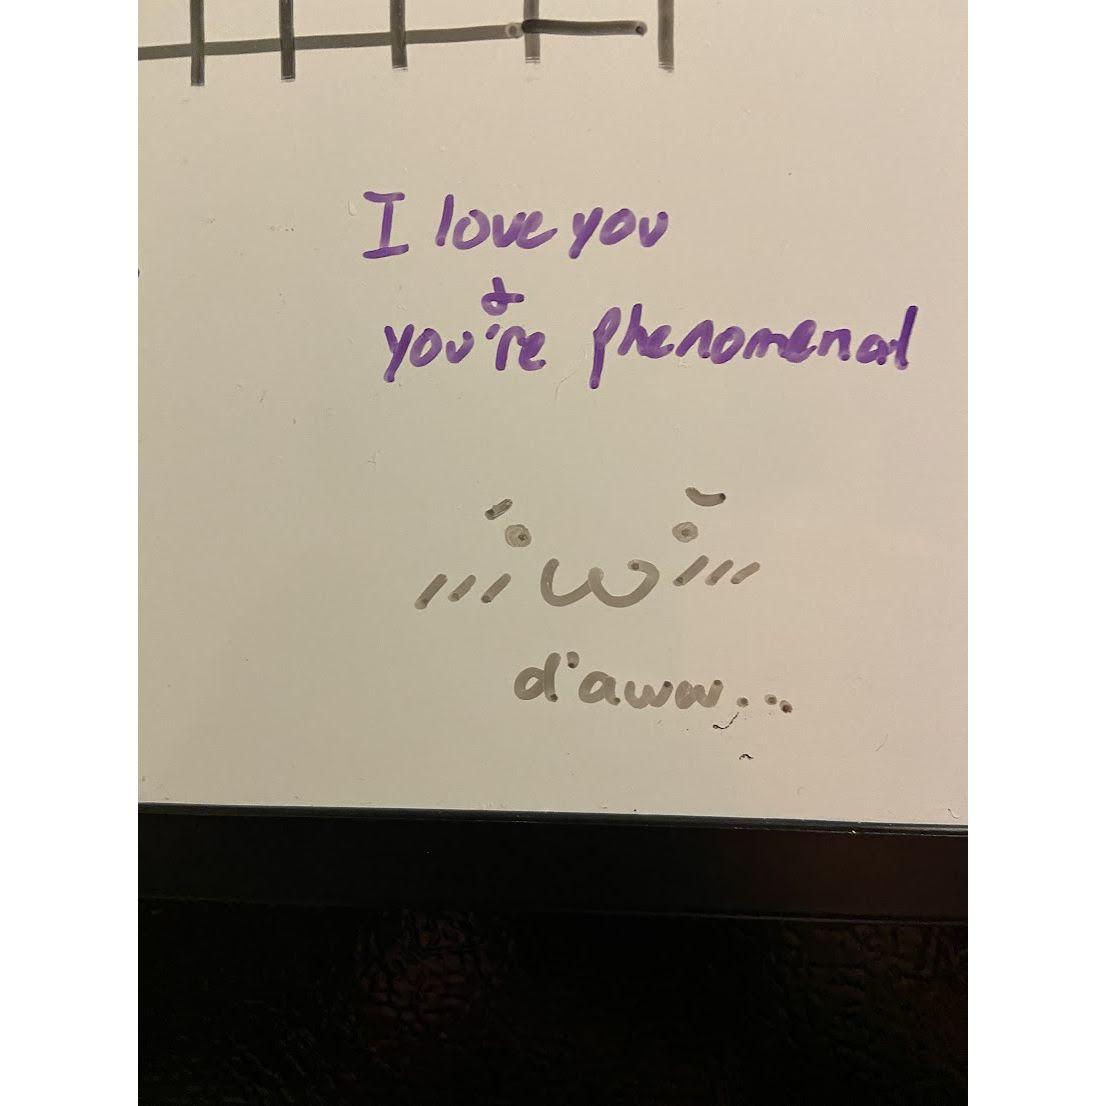 I love you
&
you're phenomenal
d'aww...